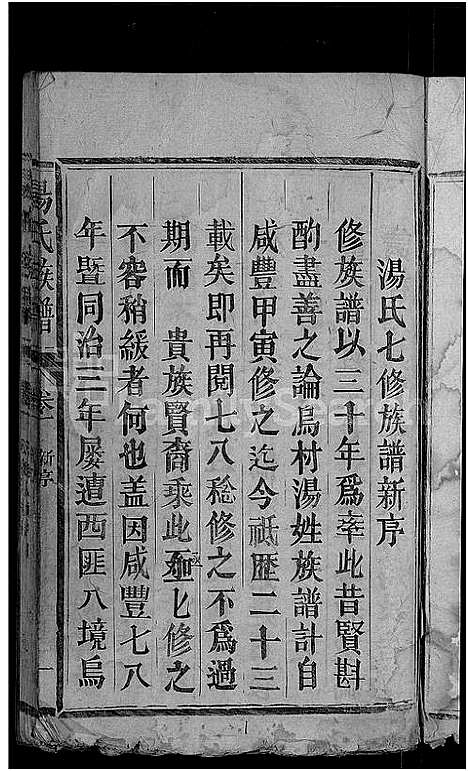 湯氏七修族譜新序
修族譜以三十年為率此昔賢斟
酌盡善之論烏村湯姓族譜計自
咸豐甲寅修之迄今祗歷二十三
載矣即再閱七八稔修之不為過
期而 貴族賢裔乘此 七修之
不容稍緩者何也盖因咸豐七八
年暨同治三年屡遭西匪入境烏
湯氏族譜 卷一 新序 一